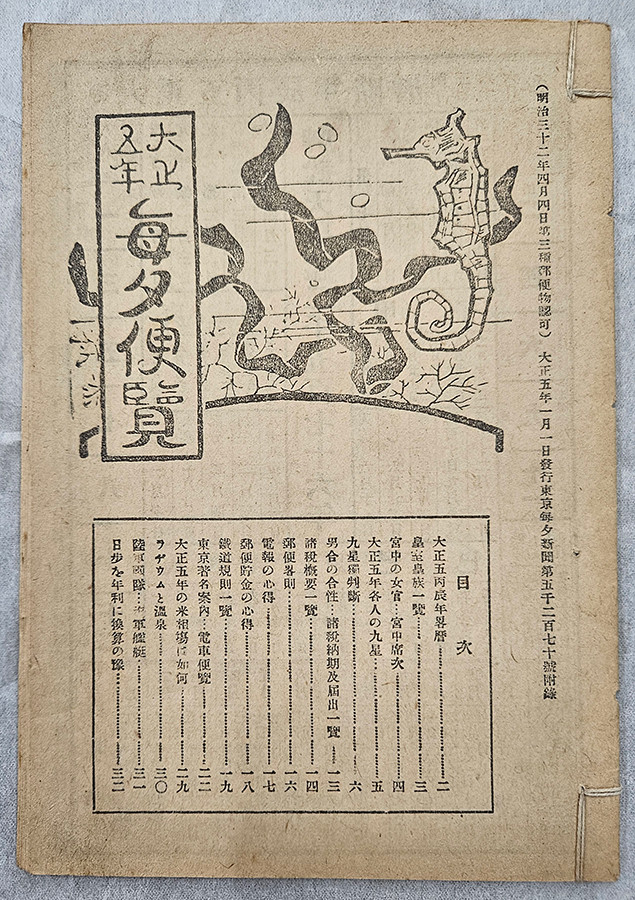 （明治三十二年四月四日第三種郵便物認可）　大正五年一月一日發行東京每夕新聞第五千二百七十號附錄
大正五年
每夕便覽
目次
大正五丙辰年畧曆…………二
皇室皇族一覽…………三
宮中の女官…宮中席次…………四
大正五年各人の九星…………五
九星獨判斷…………六
男女の合性…諸稅納期及届出一覽…………一三
諸稅概要一覽…………一四
郵便畧則…………一六
電報の心得…………一七
郵便貯金の心得…………一八
鐵道規則一覽…………一九
東京著名案內…電車便覽…………二二
大正五年の米相塲は如何…………二九
ラヂウムと溫泉…………三〇
陸軍團隊…海軍艦艇…………三一
日步を年利に換算の…………三二